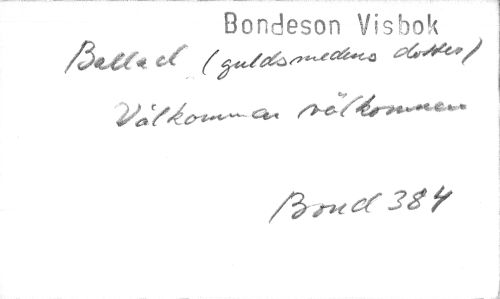 Bondeson Visbok
Ballad (guldsmedens dotter)
Välkommen välkommen
Bond 384